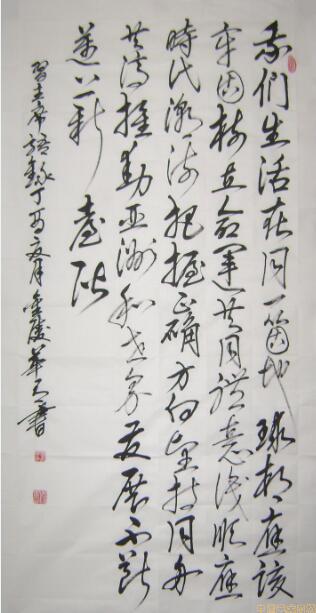 我們生活在同一箇地球村應該
牢固樹立命運共同體意識順應
時代潮流把握正確方向堅持同舟
共濟推動亞洲和世界發展不斷
邁上新臺階
習主席語錄丁酉月金陵華書